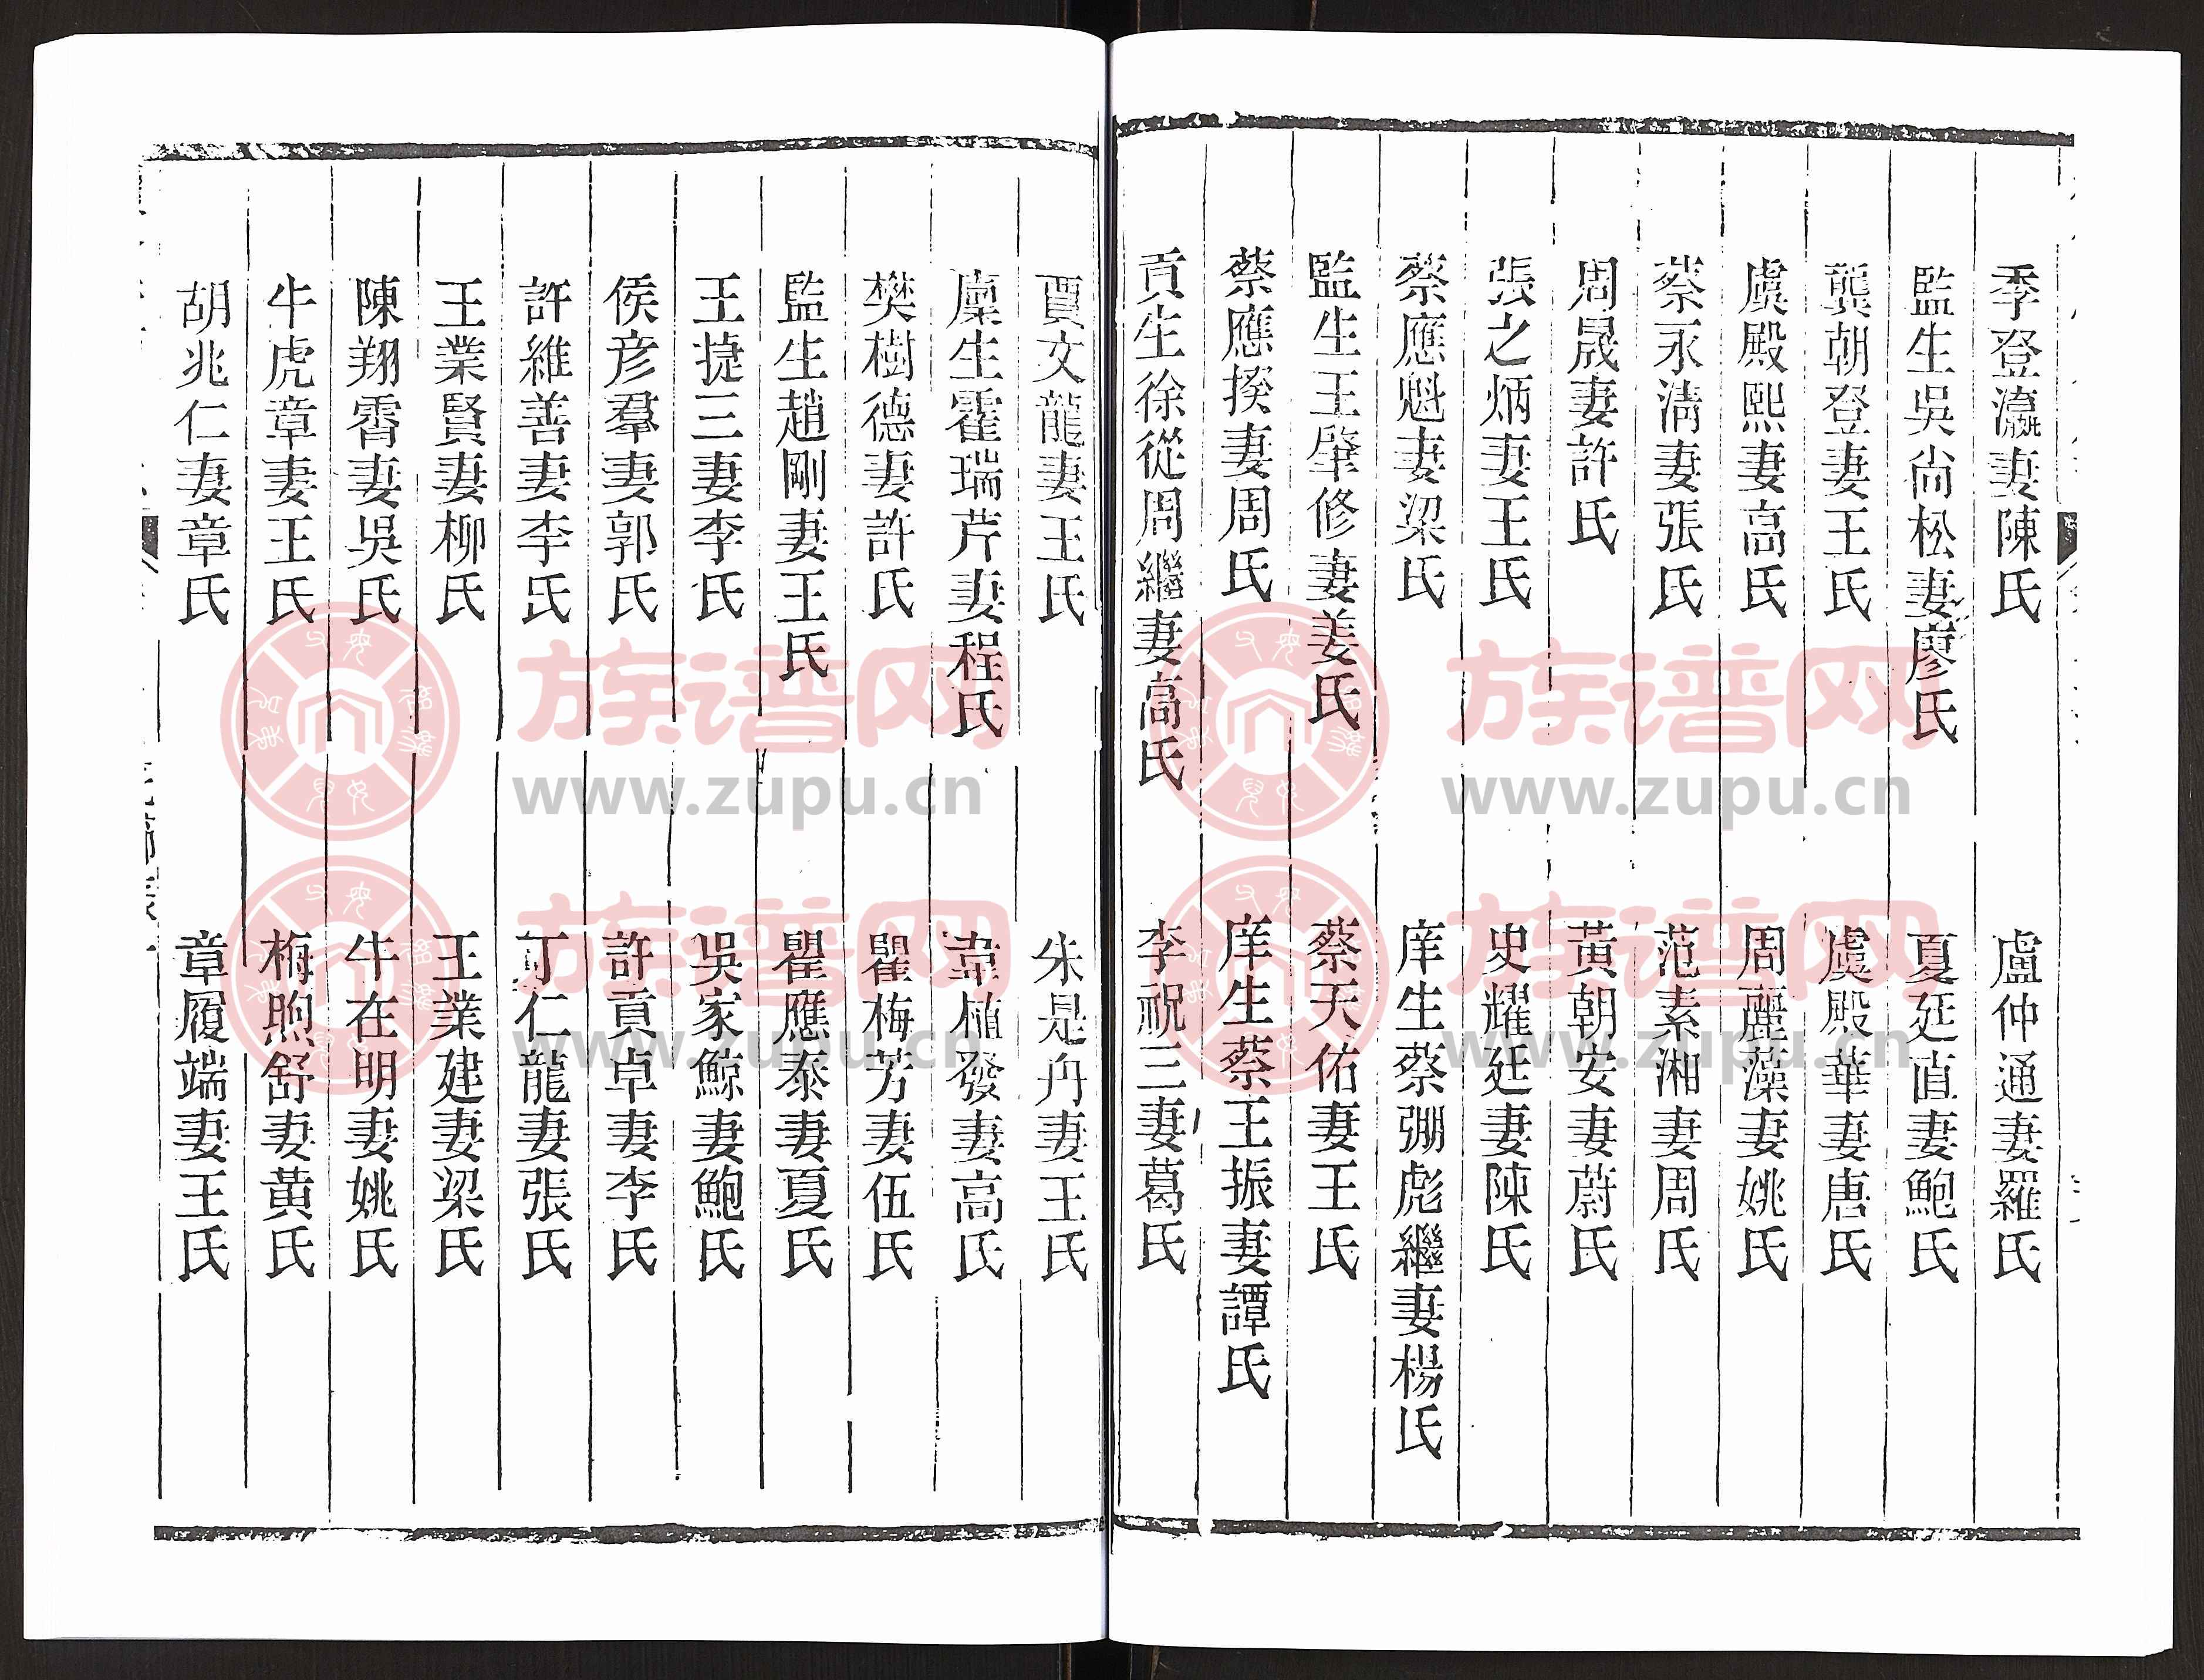 季登瀛妻陳氏
盧仲通妻羅氏
監生吳尚松妻廖氏
夏延直妻鮑氏
龔朝登妻王氏
虞殿華妻唐氏
虞殿熙妻高氏
周麗藻妻姚氏
蔡永淸妻張氏
范素湘妻周氏
周晟妻許氏
黃朝安妻蔚氏
張之炳妻王氏
史耀廷妻陳氏
蔡應魁妻梁氏
庠生蔡弸彪繼妻楊氏
監生王肇修妻姜氏
蔡天佑妻王氏
蔡應揆妻周氏
庠生蔡王振妻譚氏
貢生徐從周繼妻高氏
李祝三妻葛氏
賈文龍妻王氏
朱是丹妻王氏
廩生霍瑞芹妻程氏
韋植發妻高氏
樊樹德妻許氏
瞿梅芳妻伍氏
監生趙剛妻王氏
瞿應泰妻夏氏
王捷三妻李氏
吳家鯨妻鮑氏
侯彦羣妻郭氏
許貢卓妻李氏
許維善妻李氏
丁仁龍妻張氏
王業賢妻柳氏
王業建妻梁氏
陳翔霄妻吳氏
牛在明妻姚氏
牛虎章妻王氏
梅煦舒妻黃氏
胡兆仁妻章氏
章履端妻王氏
族谱网
www.zupu.cn
族谱网
www.zupu.cn
族谱网
www.zupu.cn
族谱网
www.zupu.cn